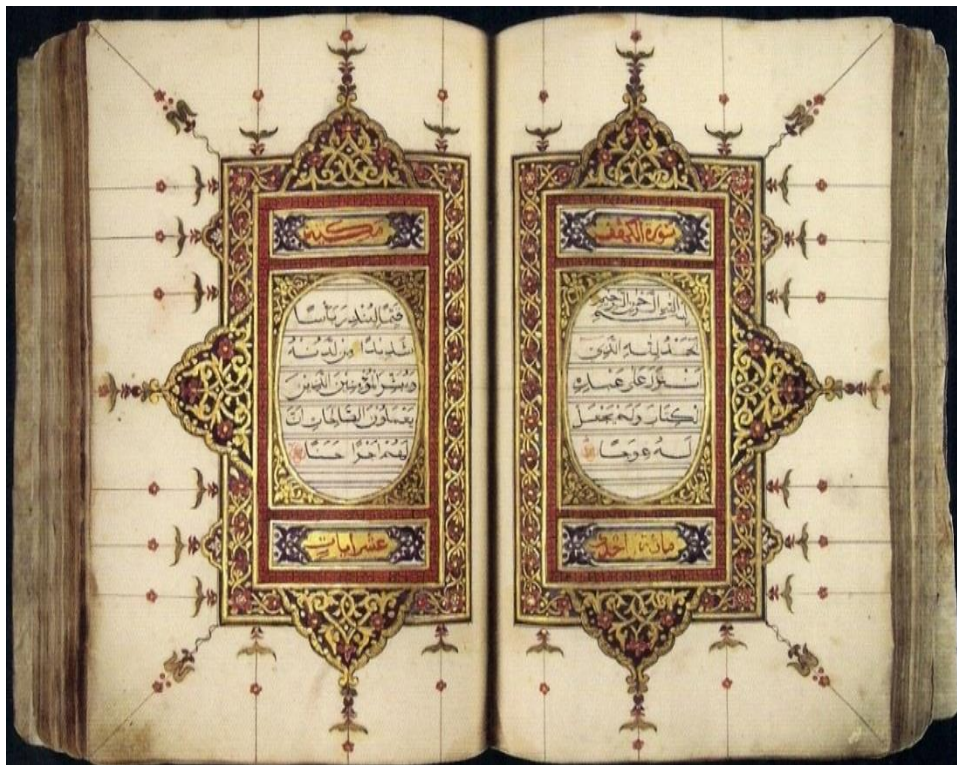 سورة الكهف
بسم الله الرحمن الرحيم
الحَمْدُ لِلّٰهِ الَّذِي
اَنْزَلَ عَلَى عَبْدِهِ
الْكِتَابَ وَلَمْ يَجْعَلْ
لَهُ عِوَجًا
مائة احدى
مكية
قَيِّمًا لِيُنْذِرَ بَأْسًا
شَدِيدًا مِنْ لَدُنْهُ
وَيُبَشِّرَ الْمُؤْمِنِينَ الَّذِينَ
يَعْمَلُونَ الصَّالِحَاتِ اَنَّ
لَهُمْ اَجْرًا حَسَنًا
عشر ايات